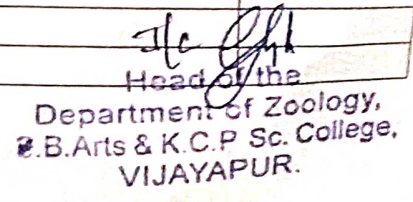 I/c
Head of the
Department of Zoology,
S.B.Arts & K.C.P Sc. College,
VIJAYAPUR.